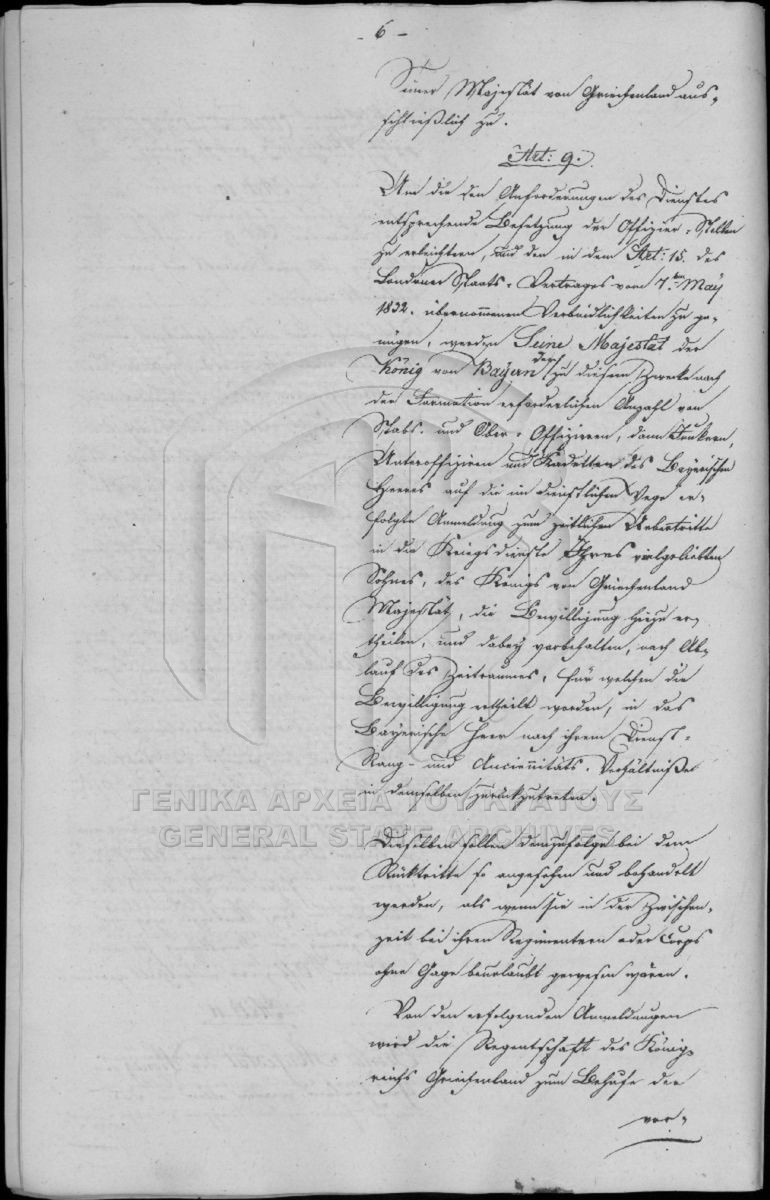 - 6 -
Seiner Majestät von Griechenland aus-
schließlich zu.
Art: 9.
Um die den Anforderungen des Dienstes
entsprechende Besetzung der Offizier-Stellen
zu erleichtern, und den in dem Art: 15. des
Londoner Staats-Vertrages vom 7ten May
1832. übernommenen Verbindlichkeiten zu ge-
nügen, werden Seine Majestät der
König von Bayern der zu diesem Zwecke nach
der Formation erforderlichen Anzahl von
Stabs- und Ober-Offizieren, dann Junkern,
Unteroffizieren und Kadetten des Bayerischen
Heeres auf die im dienstlichen Wege er-
folgte Anmeldung zum zeitlichen Uebertritte
in die Kriegsdienste Ihres vielgeliebten
Sohnes, des Königs von Griechenland
Majestät, die Bewilligung hiezu er-
theilen, und dabey vorbehalten, nach Ab-
lauf des Zeitraumes, für welchen die
Bewilligung ertheilt worden, in das
Bayerische Heer nach ihrem Dienst-
Rang- und Anciennitäts-Verhältniße
in demselben zurückzutreten.
ΓΕΝΙΚΑ ΑΡΧΕΙΑ ΤΟΥ ΚΡΑΤΟΥΣ
GENERAL STATE ARCHIVES
Dieselben sollen demzufolge bei dem
Rücktritte so angesehen und behandelt
werden, als wenn sie in der Zwischen-
zeit bei ihren Regimentern oder Corps
ohne Gage beurlaubt gewesen wären.
Von den erfolgenden Anmeldungen
wird die Regentschaft des König-
reichs Griechenland zum Behufe der
vor-